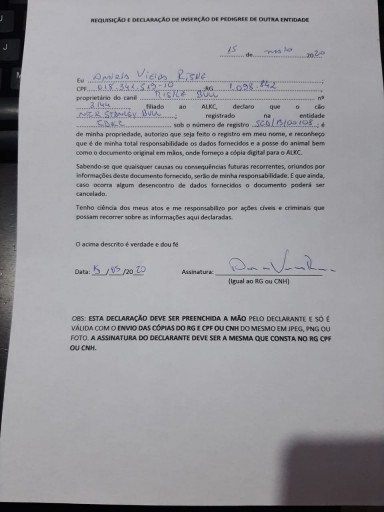 REQUISIÇÃO E DECLARAÇÃO DE INSERÇÃO DE PEDIGREE DE OUTRA ENTIDADE
15 de 2020
Eu Vieira
CPF RG 1.098.842
proprietário do canil BULL nº
2144, filiado ao ALKC, declaro que o cão
NICK STANLEY BULL, registrado na entidade
sob o número de registro, é
de minha propriedade, autorizo que seja feito o registro em meu nome, e reconheço
que é de minha total responsabilidade os dados fornecidos e a posse do animal bem
como o documento original em mãos, onde forneço a cópia digital para o ALKC.
Sabendo-se que quaisquer causas ou consequências futuras recorrentes, oriundos por
informações deste documento fornecido, serão de minha responsabilidade. E que ainda,
caso ocorra algum desencontro de dados fornecidos o documento poderá ser
cancelado.
Tenho ciência dos meus atos e me responsabilizo por ações cíveis e criminais que
possam recorrer sobre as informações aqui declaradas.
O acima descrito é verdade e dou fé
Data: 15 / 05 /20 20 Assinatura:
(Igual ao RG ou CNH)
OBS: ESTA DECLARAÇÃO DEVE SER PREENCHIDA A MÃO PELO DECLARANTE E SÓ É
VÁLIDA COM O ENVIO DAS CÓPIAS DO RG E CPF OU CNH DO MESMO EM JPEG, PNG OU
FOTO. A ASSINATURA DO DECLARANTE DEVE SER A MESMA QUE CONSTA NO RG CPF
OU CNH.